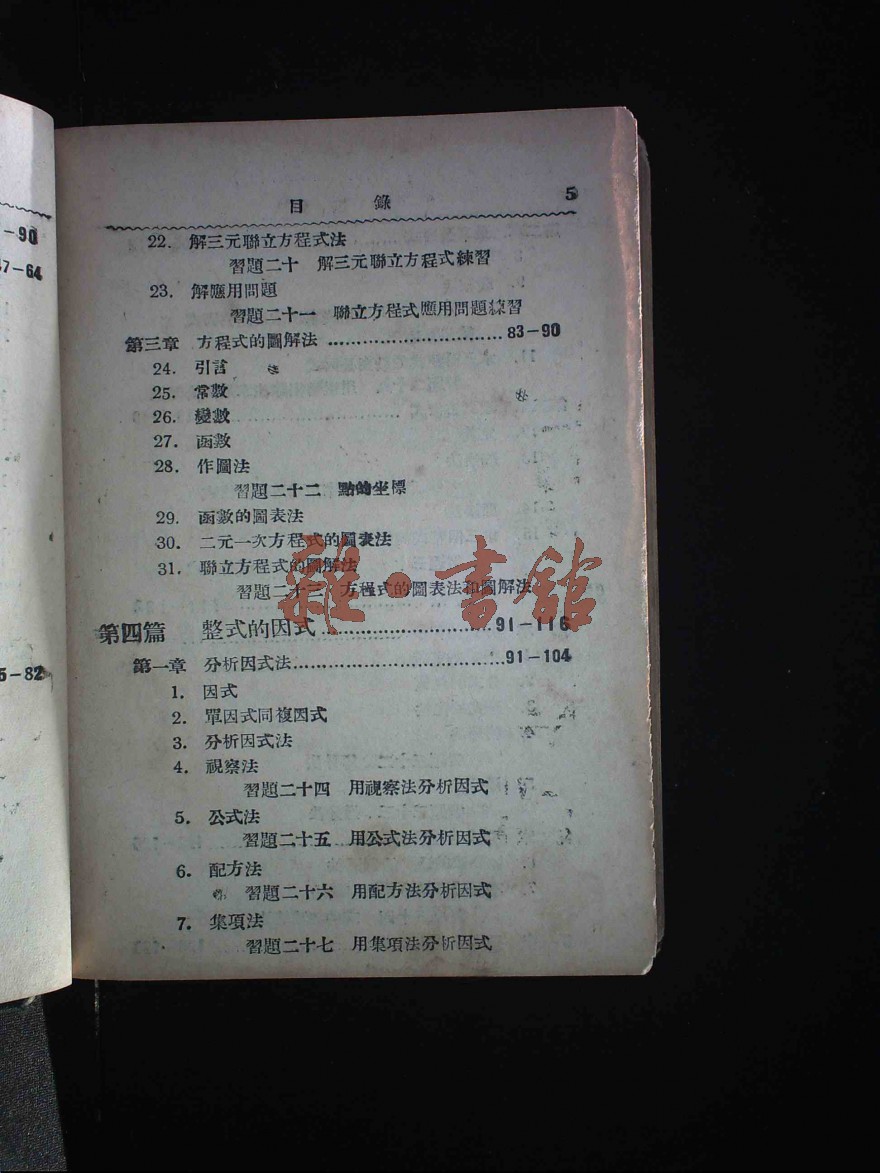 －90
47－64
5－82
目 錄 5
22. 解三元聯立方程式法
習題二十 解三元聯立方程式練習
23. 解應用問題
習題二十一 聯立方程式應用問題練習
第三章 方程式的圖解法 ……………………… 83－90
24. 引言
25. 常數
26. 變數
27. 函數
28. 作圖法
習題二十二 點的坐標
29. 函數的圖表法
30. 二元一次方程式的圖表法
31. 聯立方程式的圖解法
習題二十三 方程式的圖表法和圖解法
雜·書館
第四篇 整式的因式 ……………………… 91－116
第一章 分析因式法 ……………………… 91－104
1. 因式
2. 單因式同複因式
3. 分析因式法
4. 視察法
習題二十四 用視察法分析因式
5. 公式法
習題二十五 用公式法分析因式
6. 配方法
習題二十六 用配方法分析因式
7. 集項法
習題二十七 用集項法分析因式